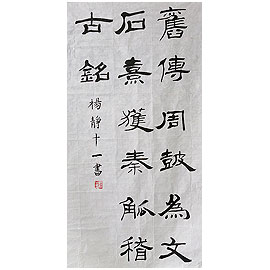 舊傳周鼓為文
石熹獲秦觚稽
古銘
楊靜十一書